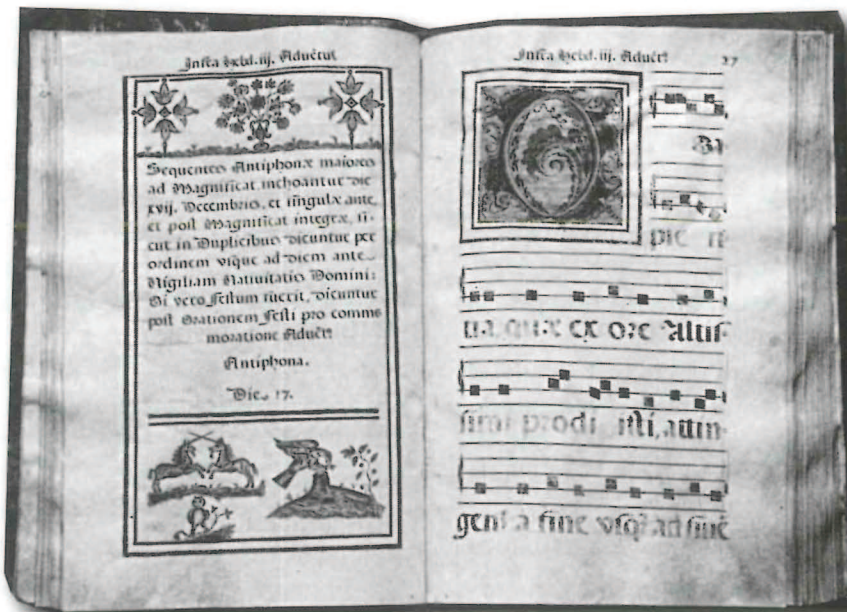 Infra Hebd. iij. Aduẽtus
Sequentes Antiphonæ maiores
ad Magnificat inchoantur die
xvij. Decembris, et singulæ ante,
et post Magnificat integræ, si-
cut in Duplicibus dicuntur per
ordinem vsque ad diem ante
Vigiliam Natiuitatis Domini:
Si vero Festum fuerit, dicuntur
post Orationem Festi pro comme
moratione Aduẽt9
Antiphona.
Die 17.
Infra Hebd. iij. Aduẽt9
37
O
Sa
pie nti
na, quæ ex ore Altis-
simi prodi isti, attin-
gens a fine vsq3 ad finẽ